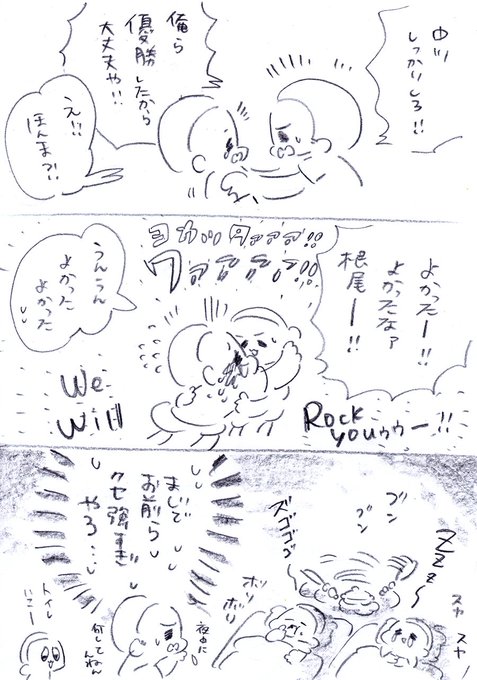 中川
しっかりしろ!!
俺ら
優勝したから
大丈夫や!!
え!!
ほんま?!
よかったー!!
よかったなァ
根尾ー!!
ヨカッタァァァ!!
ワァァァァ!!
うんうん
よかった
よかった
We
Will
Rock
youゥゥー!!
ブン
ブン
ZZZZ
スヤ
スヤ
ズゴゴゴ
ボリ
ボリ
まじで
お前ら
クセ強すぎ
やろ…
夜中に
何してんねん
トイレ
いこー